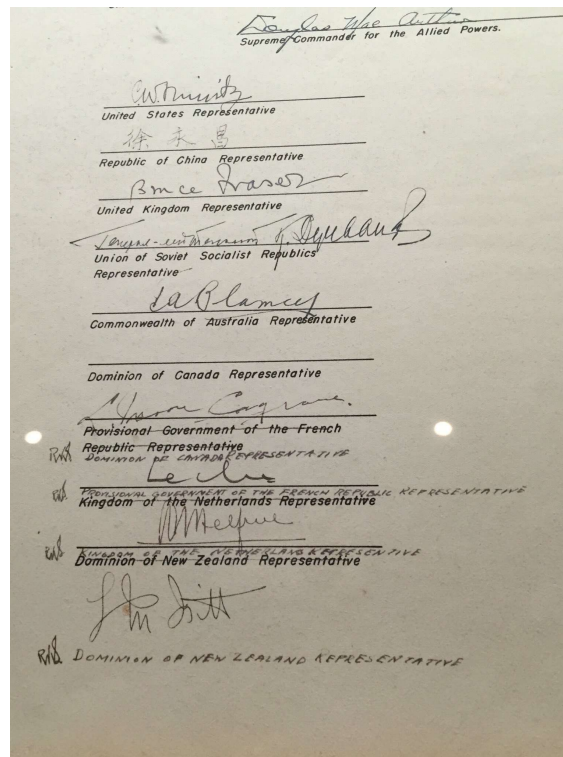 Douglas MacArthur
Supreme Commander for the Allied Powers.
C.W. Nimitz
United States Representative
徐永昌
Republic of China Representative
Bruce Fraser
United Kingdom Representative
Union of Soviet Socialist Republics
Representative
T.A. Blamey
Commonwealth of Australia Representative
Dominion of Canada Representative
L. Moore Cosgrave.
Provisional Government of the French
Republic Representative
DOMINION OF CANADA REPRESENTATIVE
Leclerc
PROVISIONAL GOVERNMENT OF THE FRENCH REPUBLIC REPRESENTATIVE
Kingdom of the Netherlands Representative
Helfrich
KINGDOM OF THE NETHERLAND REPRESENTIVE
Dominion of New Zealand Representative
L M Isitt
DOMINION OF NEW ZEALAND REPRESENTATIVE